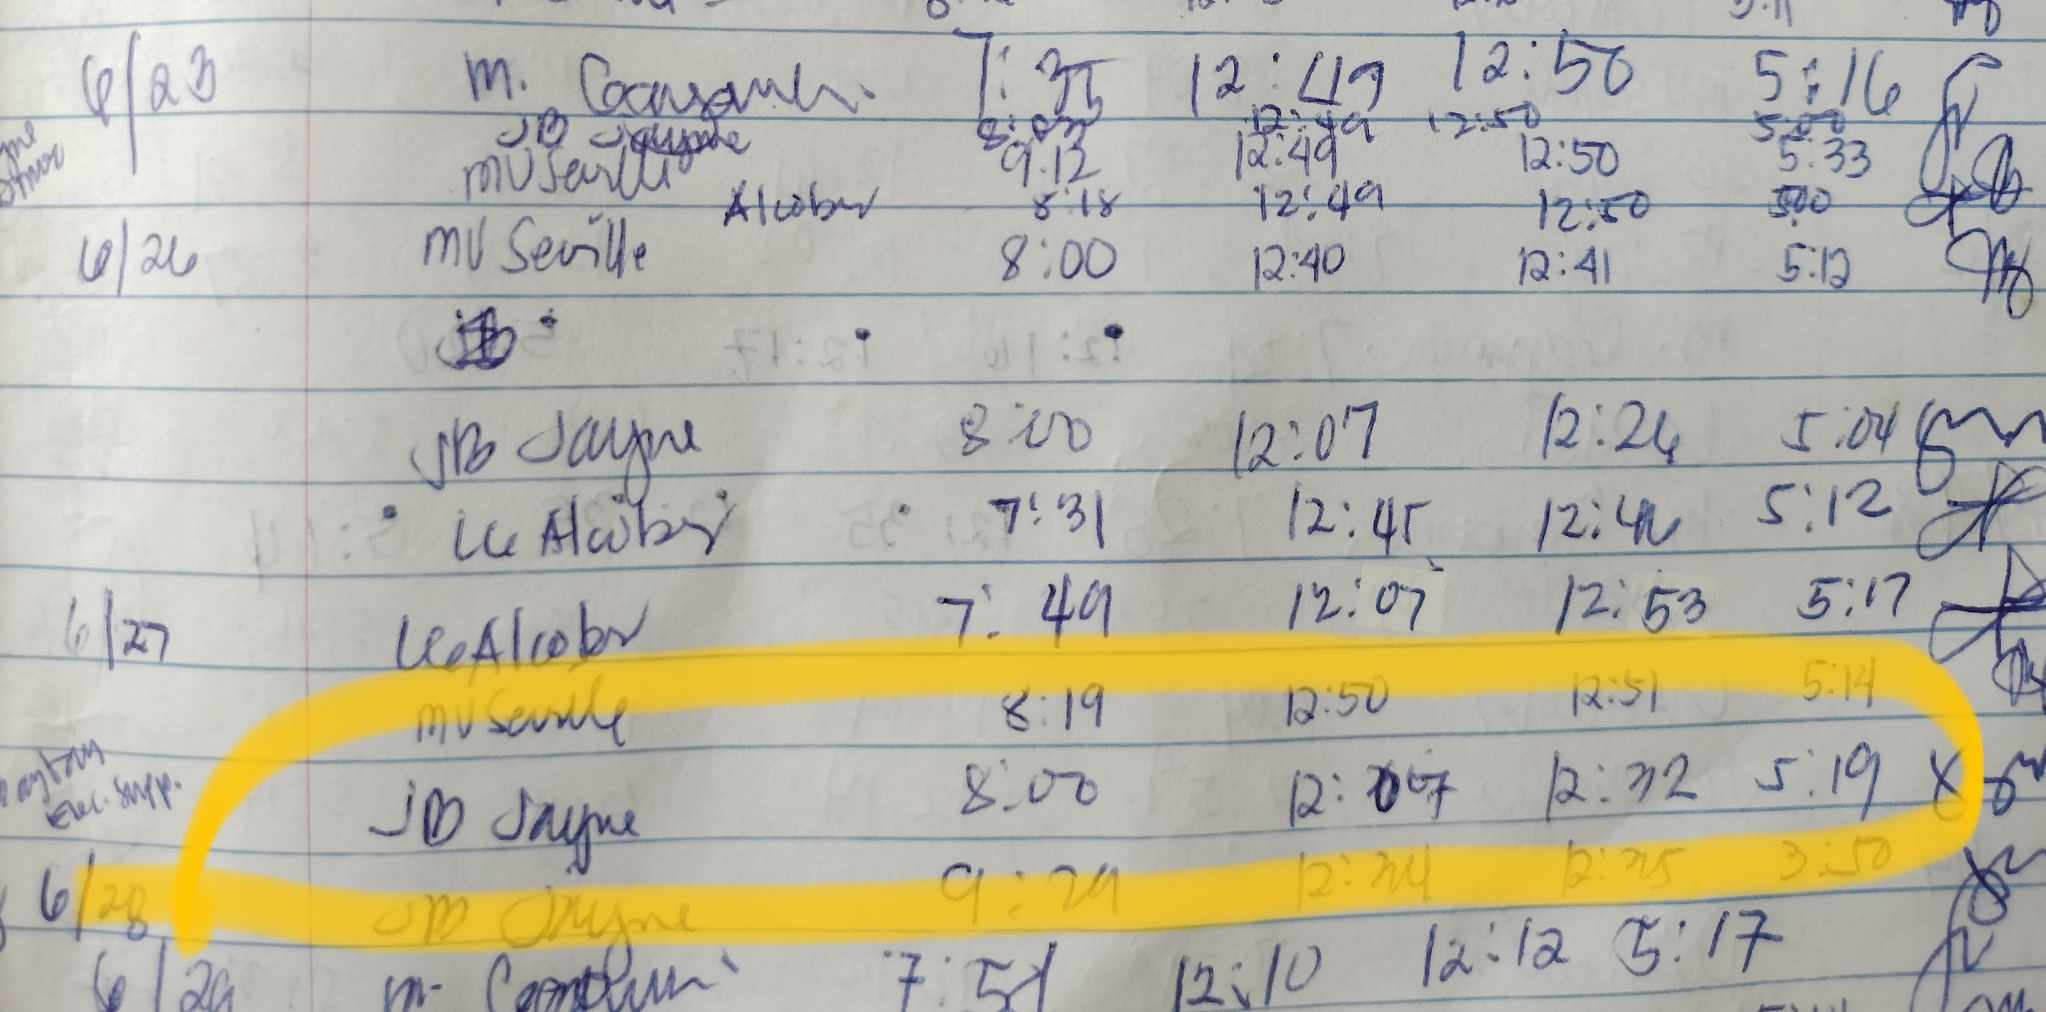 5:11
6/23 m. 7:35 12:49 12:50 5:16
JB Jayne 12:49 12:50 5:00
MV Seville 9:12 12:49 12:50 5:33
Alcober 8:18 12:49 12:50 5:00
6/26 MV Seville 8:00 12:40 12:41 5:12
JB
JB Jayne 8:00 12:07 12:26 5:04
Alcober 7:31 12:45 12:46 5:12
6/27 Alcober 7:49 12:07 12:53 5:17
MV Seville 8:19 12:50 12:51 5:14
JB Jayne 8:00 12:07 12:32 5:19
6/28 JB Jayne 9:29 12:34 12:35 3:50
6/29 m. 7:51 12:10 12:12 5:17